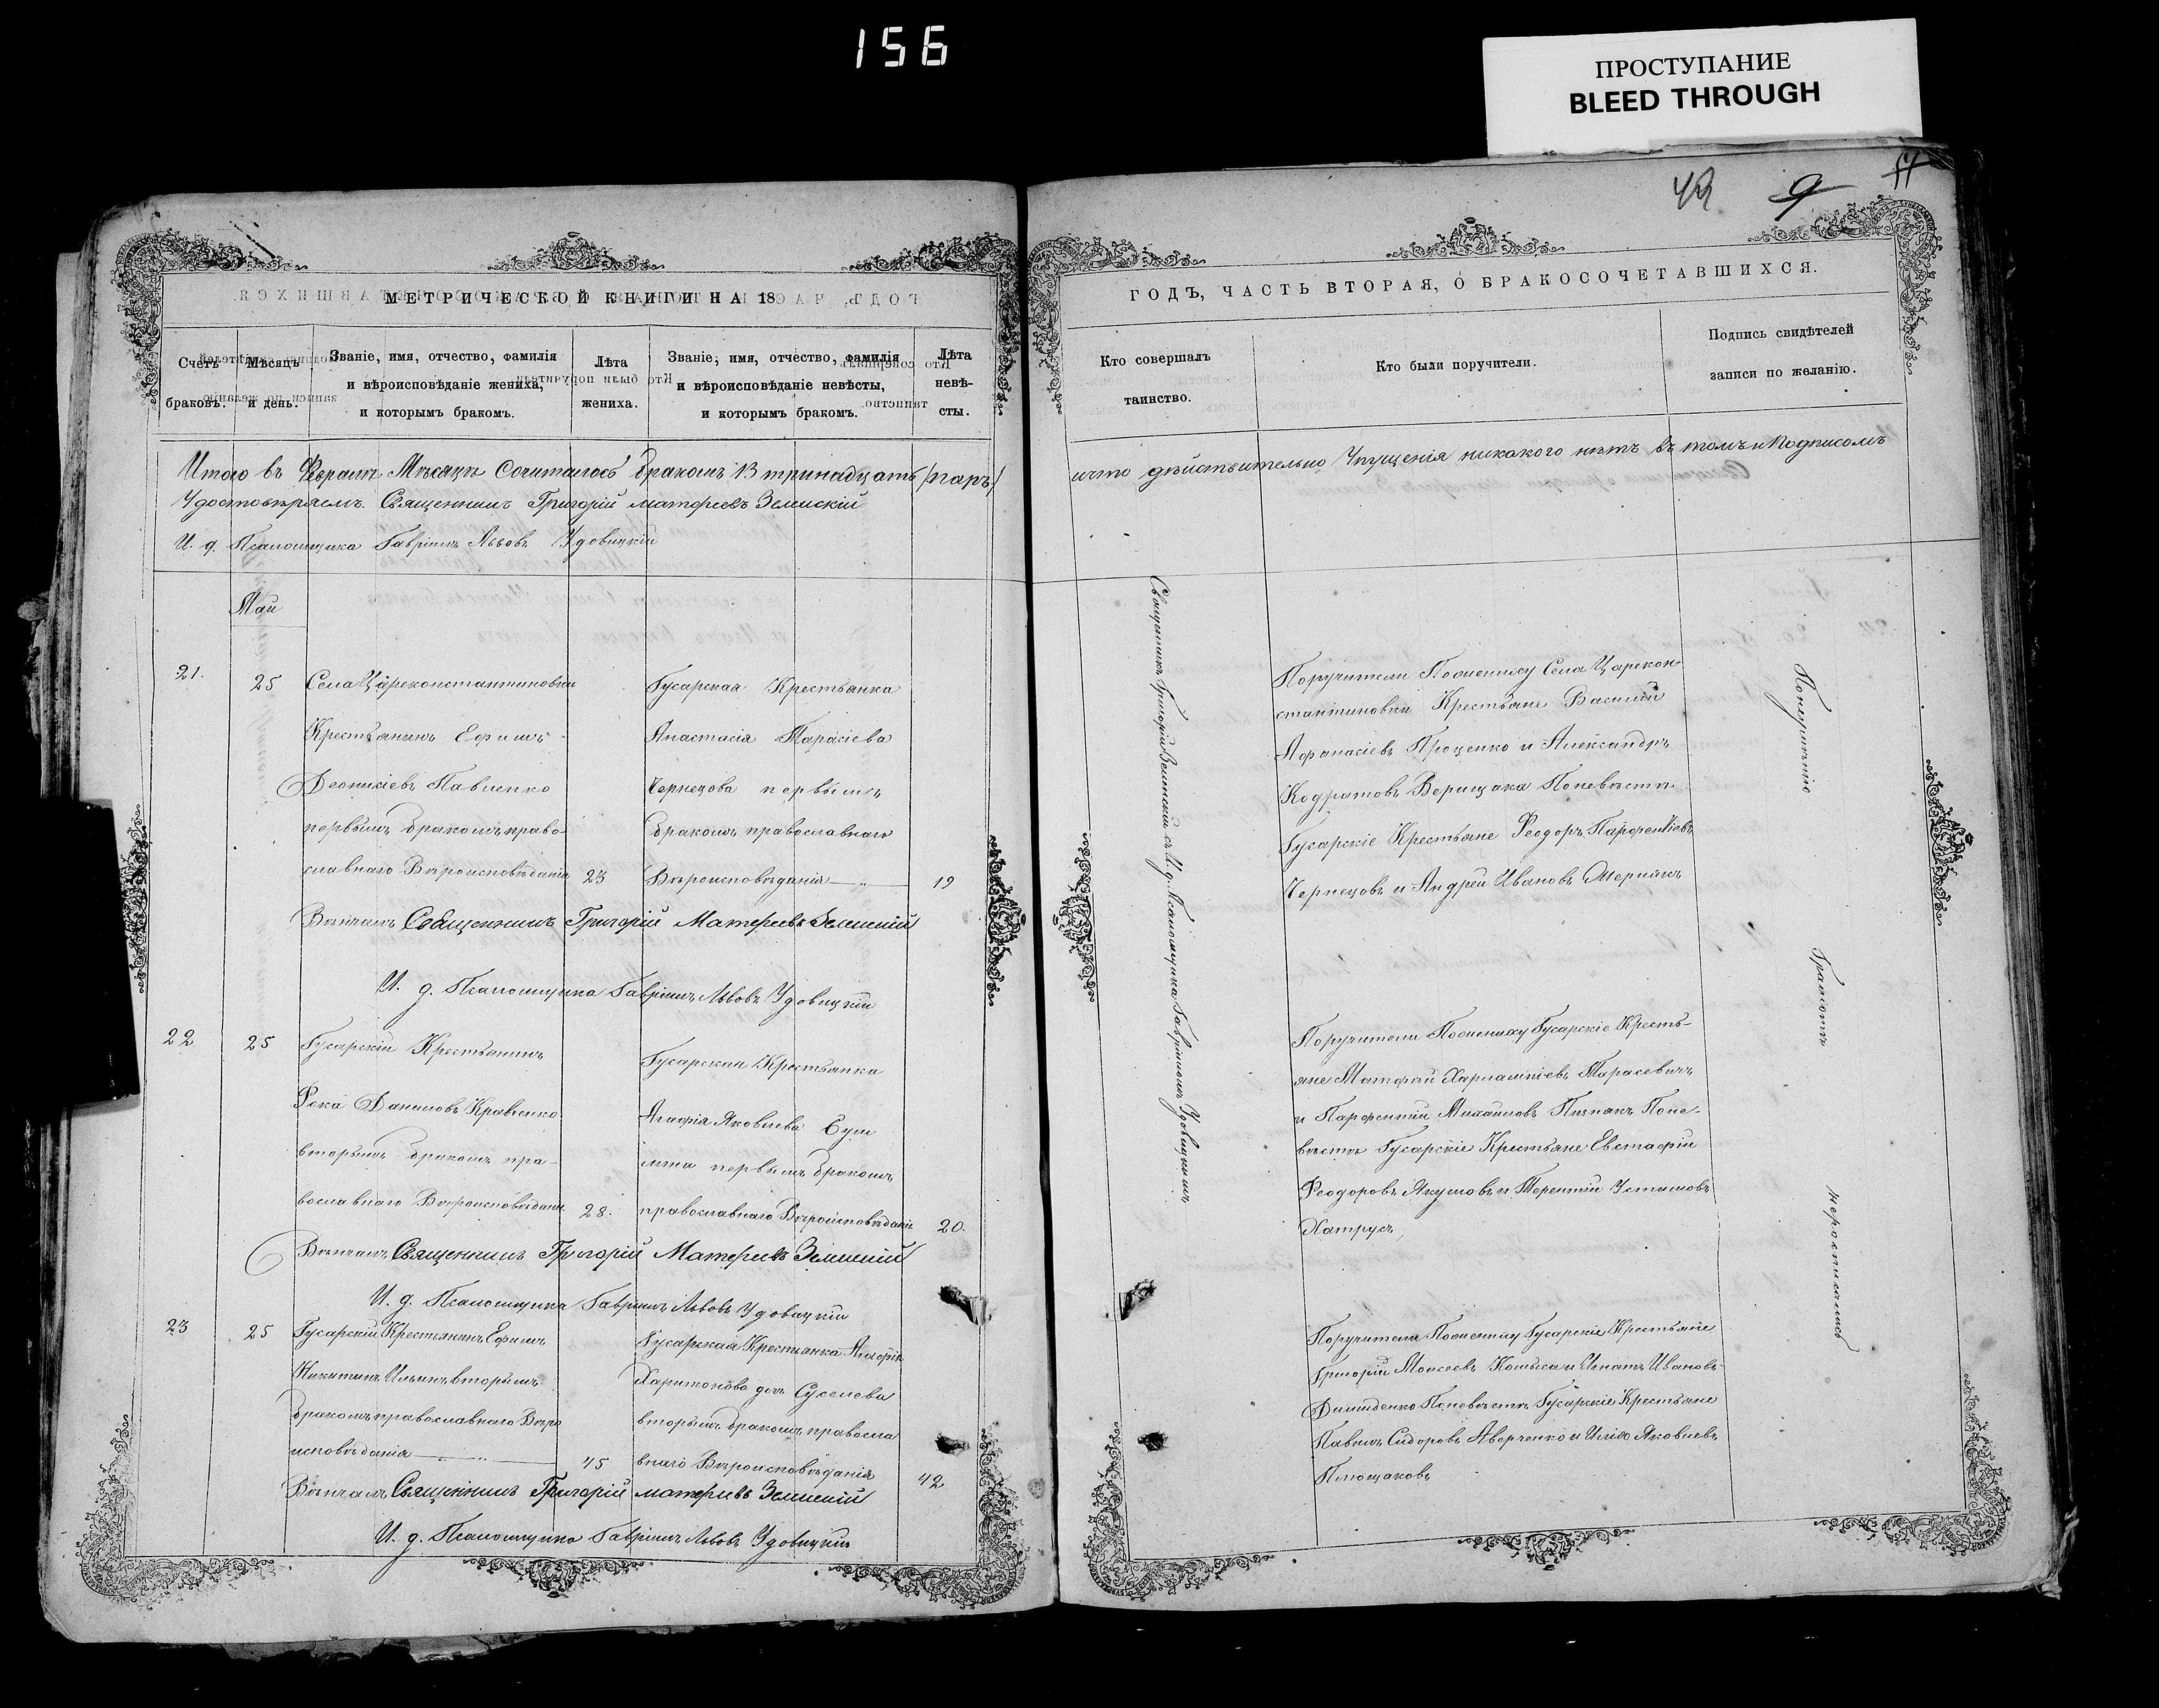 156
ПРОСТУПАНИЕ
BLEED THROUGH
9
МЕТРИЧЕСКОЙ КНИГИ НА 18
Счетъ браковъ.
Мѣсяцъ и день.
Званіе, имя, отчество, фамилія и вѣроисповѣданіе жениха, и которымъ бракомъ.
Лѣта жениха.
Званіе, имя, отчество, фамилія и вѣроисповѣданіе невѣсты, и которымъ бракомъ.
Лѣта невѣ-сты.
Итого въ Февралѣ Мѣсяцѣ Сочиталось бракомъ 13 тринадцать /паръ/
Удостовѣряемъ. Священникъ Григорій Матфеевъ
И. д. Псаломщика Гавріилъ Львовъ Удовицкій
Май
21.
25
Села Цареконстантиновки
Крестьянинъ Ефимъ
Деонисіевъ Павленко
первымъ бракомъ право-
славнаго Вѣроисповѣданія
23
Гусарская Крестьянка
Анастасія Тарасіева
Чернецова первымъ
бракомъ православнаго
Вѣроисповѣданія
19
Вѣнчалъ Священникъ Григорій Матфеевъ
И. д. Псаломщика Гавріилъ Львовъ Удовицкій
22
25
Гусарскій Крестьянинъ
Даниловъ Кравченко
вторымъ бракомъ пра-
вославнаго Вѣроисповѣданія
28.
Гусарская Крестьянка
Агафія Яковлева
первымъ бракомъ
православнаго Вѣроисповѣданія
20.
Вѣнчалъ Священникъ Григорій Матфеевъ
И. д. Псаломщика Гавріилъ Львовъ Удовицкій
23
25
Гусарскій Крестьянинъ Ефимъ
Никитинъ Ильинъ вторымъ
бракомъ православнаго Вѣро
исповѣданія
45
Гусарская Крестьянка Агафія
Харитонова дочь Суслева
вторымъ бракомъ правосла
внаго Вѣроисповѣданія
42
Вѣнчалъ Священникъ Григорій Матфеевъ
И. д. Псаломщика Гавріилъ Львовъ Удовицкій
ГОДЪ, ЧАСТЬ ВТОРАЯ, О БРАКОСОЧЕТАВШИХСЯ.
Кто совершалъ таинство.
Кто были поручители.
Подпись свидѣтелей записи по желанію.
и что дѣйствительно Упущенія никакого нѣтъ въ томъ и подписомъ
Священникъ Григорій съ И. д. Псаломщика Гавріиломъ Удовицкимъ
Поручители По жениху Села Царекон-
стантиновки Крестьяне Василій
Афанасіевъ Проценко и Александръ
Кодратовъ Верищака По невѣстѣ
Гусарскіе Крестьяне Феодоръ Парфентіевъ
Чернецовъ и Андрей Ивановъ
Поручители По жениху Гусарскіе Кресть-
яне Матфей Харлампіевъ Тарасевичъ
и Парфентій Михаиловъ По не-
вѣстѣ Гусарскіе Крестьяне Евстафій
Феодоровъ Якушовъ и Терентій Устимовъ
Хатрусъ
Поручители По жениху Гусарскіе Крестьяне
Григорій Моисеевъ и Игнатъ Ивановъ
По невѣстѣ Гусарскіе Крестьяне
Павелъ Сидоровъ Аверченко и Илія Яковлевъ
Плющаковъ
По неумѣнію
Грамотѣ
не росписались